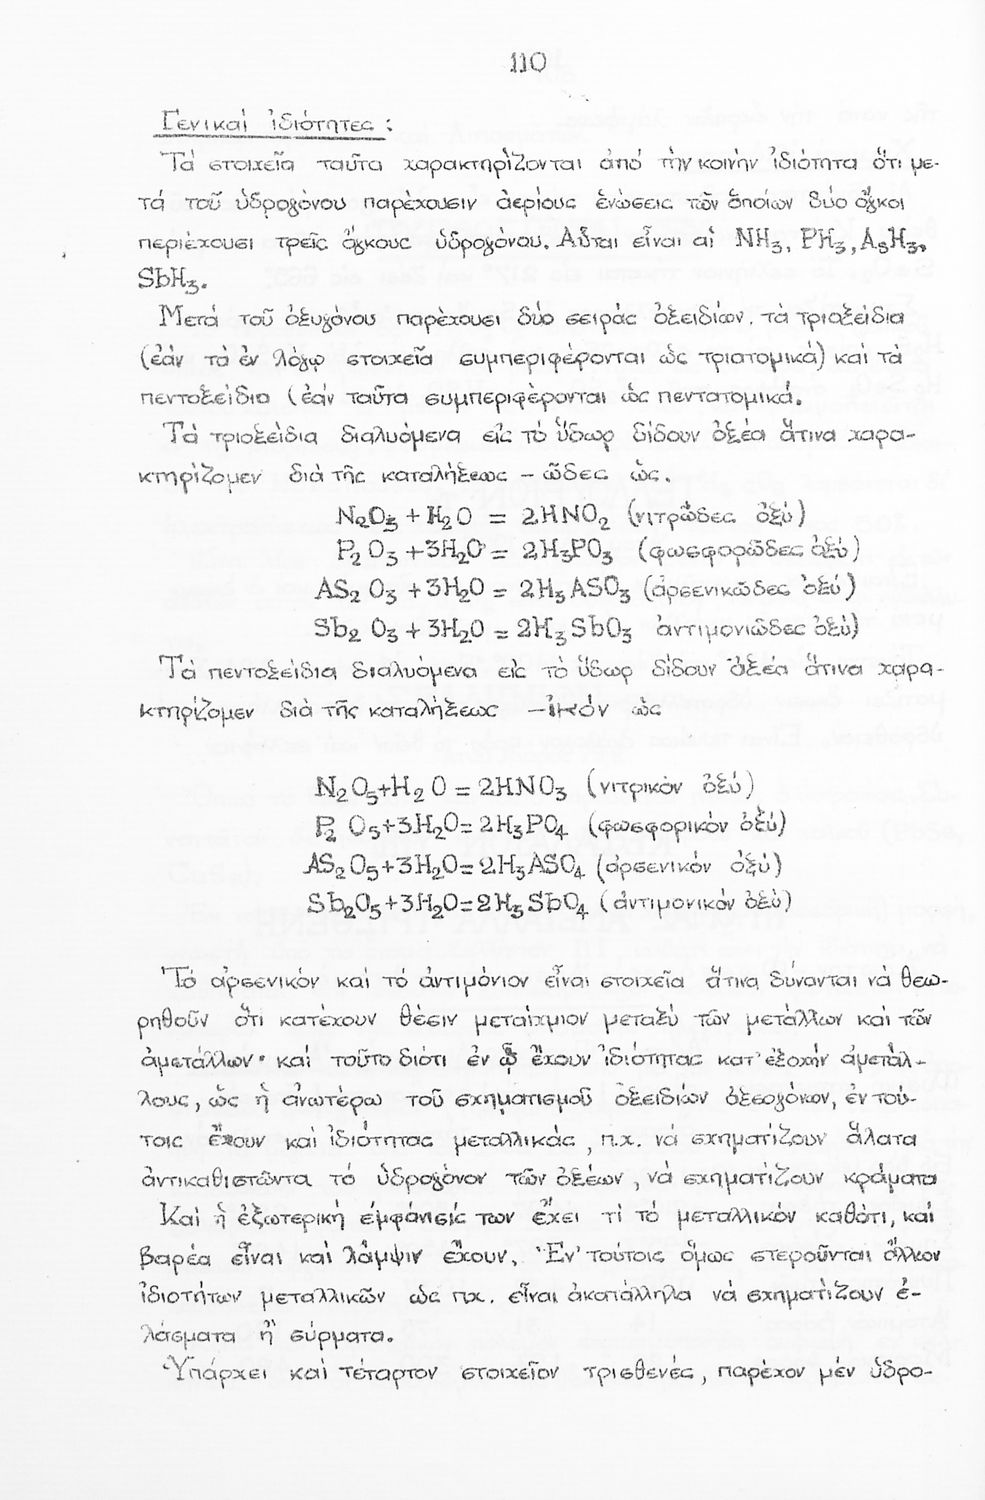 110
Γενικαί ἰδιότητες :
Τά στοιχεῖα ταῦτα χαρακτηρίζονται ἀπό τήν κοινήν ἰδιότητα ὅτι με-
τά τοῦ ὑδρογόνου παρέχουσιν ἀερίους ἑνώσεις τῶν ὁποίων δύο ὄγκοι
περιέχουσι τρεῖς ὄγκους ὑδρογόνου. Αὗται εἶναι αἱ NH3, PH3, AsH3,
SbH3.
Μετά τοῦ ὀξυγόνου παρέχουσι δύο σειράς ὀξειδίων. τά τριοξείδια
(ἐάν τά ἐν λόγῳ στοιχεῖα συμπεριφέρονται ὡς τριατομικά) καί τά
πεντοξείδια (ἐάν ταῦτα συμπεριφέρονται ὡς πεντατομικά.
Τά τριοξείδια διαλυόμενα εἰς τό ὕδωρ δίδουν ὀξέα ἅτινα χαρα-
κτηρίζομεν διά τῆς καταλήξεως - ῶδες ὡς.
N2O3 + H2O = 2HNO2 (νιτρῶδες ὀξύ)
P2 O3 +3H2O = 2H3PO3 (φωσφορῶδες ὀξύ)
AS2 O3 +3H2O = 2H3 ASO3 (ἀρσενικῶδες ὀξύ)
Sb2 O3 + 3H2O = 2H3 SbO3 ἀντιμονιῶδες ὀξύ)
Τά πεντοξείδια διαλυόμενα εἰς τό ὕδωρ δίδουν ὀξέα ἅτινα χαρα-
κτηρίζομεν διά τῆς καταλήξεως -ικόν ὡς
N2O5+H2O = 2HNO3 (νιτρικόν ὀξύ)
P2 O5+3H2O=2H3PO4 (φωσφορικόν ὀξύ)
AS2O5+3H2O=2H3ASO4 (ἀρσενικόν ὀξύ)
Sb2O5+3H2O=2H3SbO4 (ἀντιμονικόν ὀξύ)
Τό ἀρσενικόν καί τό ἀντιμόνιον εἶναι στοιχεῖα ἅτινα δύνανται νά θεω-
ρηθοῦν ὅτι κατέχουν θέσιν μεταίχμιον μεταξύ τῶν μετάλλων καί τῶν
ἀμετάλλων· καί τοῦτο διότι ἐν ᾧ ἔχουν ἰδιότητας κατ' ἐξοχήν ἀμετάλ-
λους, ὡς ἡ ἀνωτέρω τοῦ σχηματισμοῦ ὀξειδίων ὀξεογόνων, ἐν τού-
τοις ἔχουν καί ἰδιότητας μεταλλικάς, π.χ. νά σχηματίζουν ἅλατα
ἀντικαθιστῶντα τό ὑδρογόνον τῶν ὀξέων, νά σχηματίζουν κράματα
Καί ἡ ἐξωτερική ἐμφάνισίς των ἔχει τί τό μεταλλικόν καθότι, καί
βαρέα εἶναι καί λάμψιν ἔχουν. Ἐν τούτοις ὅμως στεροῦνται ἄλλων
ἰδιοτήτων μεταλλικῶν ὡς π.χ. εἶναι ἀκατάλληλα νά σχηματίζουν ἐ-
λάσματα ἤ σύρματα.
Ὑπάρχει καί τέταρτον στοιχεῖον τρισθενές, παρέχον μέν ὑδρο-